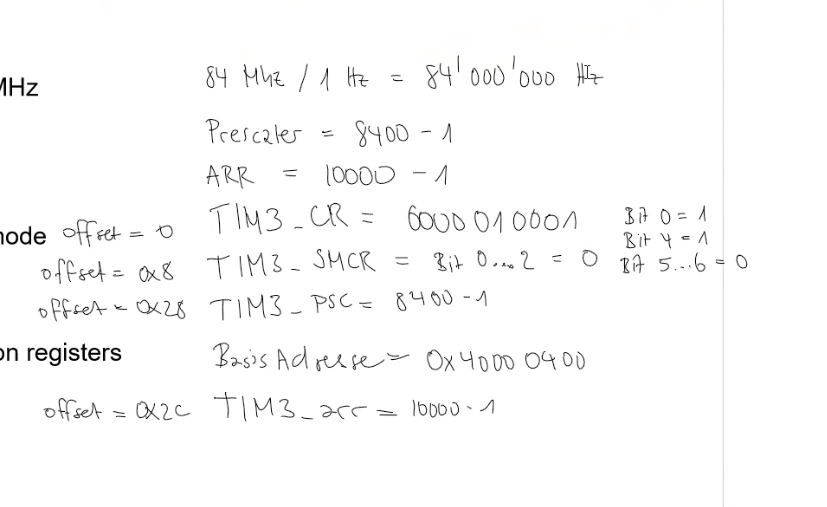 84 Mhz / 1 Hz = 84'000'000 Hz
MHz
Prescaler = 8400 - 1
ARR = 10000 - 1
mode offset = 0 TIM3_CR = 60000010001 Bit 0 = 1
Bit 4 = 1
offset = 0x8 TIM3_SMCR = Bit 0...2 = 0 Bit 5...6 = 0
offset = 0x28 TIM3_PSC = 8400 - 1
on registers Basis Adresse = 0x4000 0400
offset = 0x2C TIM3_arr = 10000 - 1